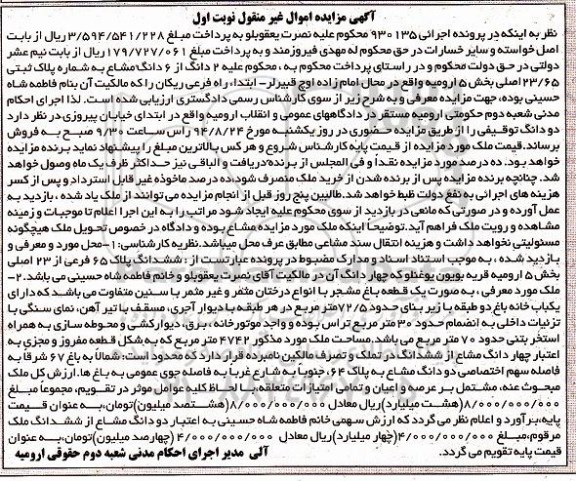 آگهی مزایده اموال غیر منقول نوبت اول
نظر به اینکه در پرونده اجرائی ۹۳۰۱۳۵ محکوم علیه نصرت یعقوبلو به پرداخت مبلغ ۳/۵۹۴/۵۴۱/۲۲۸ ریال از بابت
اصل خواسته و سایر خسارات در حق محکوم له مهدی فیروزمند و به پرداخت مبلغ ۱۷۹/۷۲۷/۰۶۱ ریال از بابت نیم عشر
دولتی در حق دولت محکوم و در راستای پرداخت محکوم به، محکوم علیه ۲ دانگ از ۶ دانگ مشاع به شماره پلاک ثبتی
۲۳/۶۵ اصلی بخش ۵ ارومیه واقع در محال امام زاده اوچ قبیرلر- ابتداء راه فرعی ریکان را که مالکیت آن بنام فاطمه شاه
حسینی بوده، جهت مزایده معرفی و به شرح زیر از سوی کارشناس رسمی دادگستری ارزیابی شده است. لذا اجرای احکام
مدنی شعبه دوم حکومتی ارومیه مستقر در دادگاههای عمومی و انقلاب ارومیه واقع در ابتدای خیابان پیروزی در نظر دارد
دو دانگ توقیفی را از طریق مزایده حضوری در روز یکشنبه مورخ ۹۴/۸/۲۴ راس ساعت ۹/۳۰ صبح به فروش
برساند. قیمت ملک مورد مزایده از قیمت پایه کارشناس شروع و هر کس بالاترین مبلغ را پیشنهاد نماید برنده مزایده
خواهد بود. ده درصد مورد مزایده نقدا و فی المجلس از برنده دریافت و الباقی نیز حداکثر ظرف یک ماه وصول خواهد
شد. چنانچه برنده مزایده پس از برنده شدن از خرید ملک منصرف شود ده درصد ماخوذه غیر قابل استرداد و پس از کسر
هزینه های اجرائی به نفع دولت ضبط خواهد شد. طالبین پنج روز قبل از انجام مزایده می توانند از ملک یاد شده، بازدید به
عمل آورده و در صورتی که مانعی در بازدید از سوی محکوم علیه ایجاد شود مراتب را به این اجرا اعلام تا موجبات و زمینه
مشاهده و رویت ملک فراهم آید. توضیحا اینکه ملک مورد مزایده مشاع بوده و دادگاه در خصوص تحویل ملک هیچگونه
مسئولیتی نخواهد داشت و هزینه انتقال سند مشاعی مطابق عرف محل میباشد. نظریه کارشناسی: ۱- محل مورد و معرفی و
بازدید شده، به موجب استناد اسناد و مدارک مضبوط در پرونده عبارتست از: ششدانگ پلاک ۶۵ فرعی از ۲۳ اصلی
بخش ۵ ارومیه قریه بویون یوغنلو که چهار دانگ آن در مالکیت آقای نصرت یعقوبلو و خانم فاطمه شاه حسینی می باشد. ۲-
ملک مورد معرفی، به صورت یک قطعه باغ مشجر با انواع درختان مثمر و غیر مثمر با سنین متفاوت می باشد که دارای
یکباب خانه باغ دو طبقه با زیر بنای حدود ۷۲/۵ متر مربع در هر طبقه با دیوار آجری، مسقف با تیر آهن، نمای سنگی با
تزئینات داخلی به انضمام حدود ۳۰ متر مربع تراس بوده و واجد موتورخانه، برق، دیوارکشی و محوطه سازی به همراه
استخر بتنی حدود ۷۰ متر مربع می باشد. مساحت ملک مورد مذکور ۴۷۴۲ متر مربع که به شکل قطعه مفروز و مجزی به
اعتبار چهار دانگ مشاع از ششدانگ در تملک و تصرف مالکین نامبرده قرار دارد که محدود است: شمالا به باغ ۶۷ شرقا به
فاصله سهم اختصاصی دو دانگ مشاع به پلاک ۶۴، جنوبا به شارع غربا به فاصله جوی عمومی به باغ ها. ارزش کل ملک
مبحوث عنه، مشتمل بر عرصه و اعیان و تمامی امتیازات متعلقه، با لحاظ کلیه عوامل موثر در تقویم، مجموعا مبلغ
۸/۰۰۰/۰۰۰/۰۰۰ (هشت میلیارد) ریال معادل ۸۰۰/۰۰۰/۰۰۰ (هشتصد میلیون) تومان، به عنوان قیمت
پایه، برآورد و اعلام نظر می گردد که ارزش سهمی خانم فاطمه شاه حسینی به اعتبار دو دانگ مشاع از ششدانگ ملک
مرقوم، مبلغ ۴/۰۰۰/۰۰۰/۰۰۰ (چهار میلیارد) ریال معادل ۴۰۰/۰۰۰/۰۰۰ (چهارصد میلیون) تومان، به عنوان
قیمت پایه تقویم می گردد.
آلی مدیر اجرای احکام مدنی شعبه دوم حقوقی ارومیه